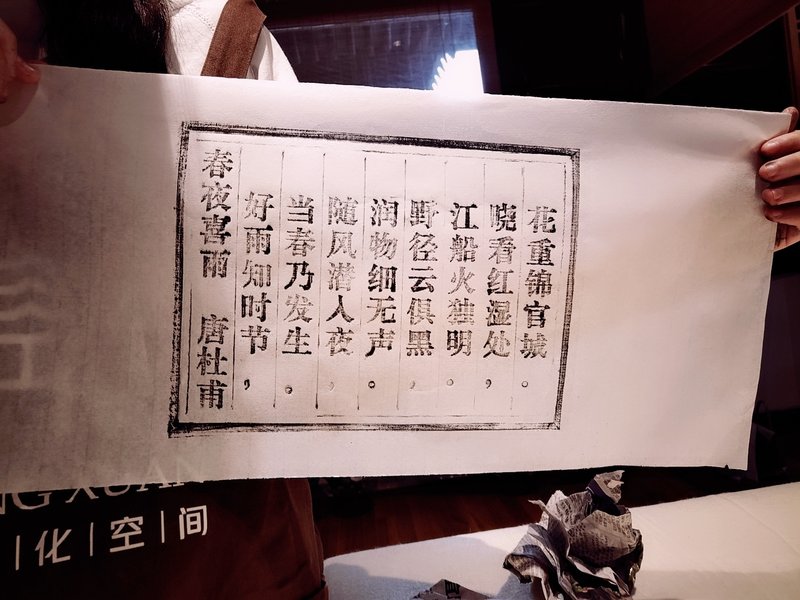 春夜喜雨 唐杜甫
好雨知时节，
当春乃发生。
随风潜入夜，
润物细无声。
野径云俱黑，
江船火独明。
晓看红湿处，
花重锦官城。
NG XUAN
化|空|间